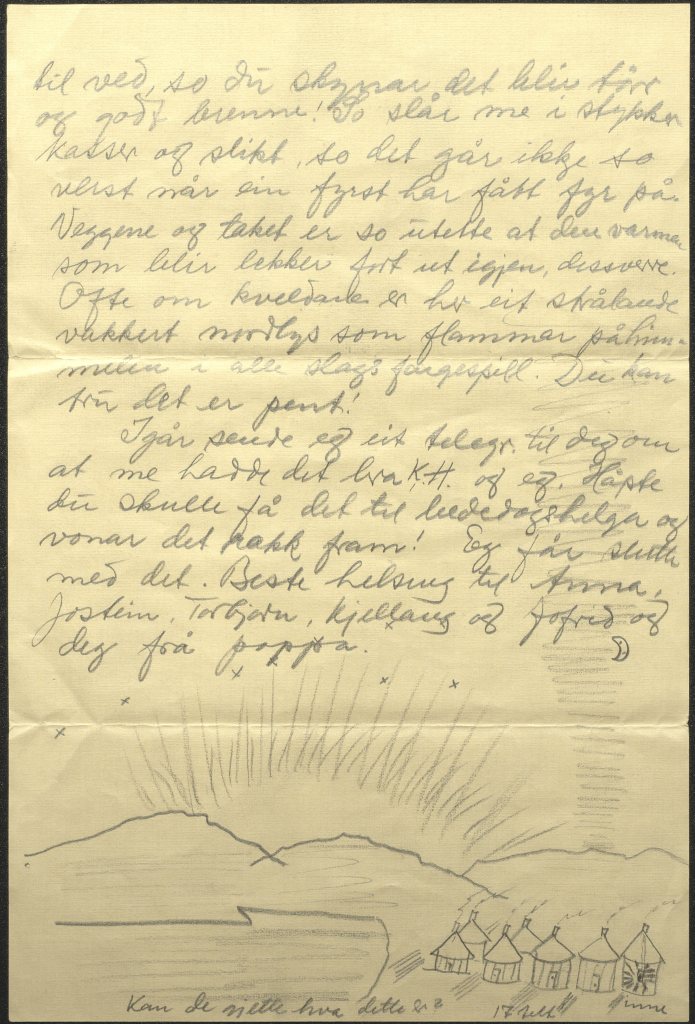 til ved, so du skynar det blir tørr
og godt brenne! So slår me i stykker
kasser og slikt, so det går ikkje so
verst når ein fyrst har fått fyr på.
Veggene og taket er so utette at den varmen
som blir lekker fort ut igjen, dessverre.
Ofte om kveldane er her eit strålande
vakkert nordlys som flammar på him-
melen i alle slags fargespill. Du kan
tru det er pent!
Igår sende eg eit telegr. til deg om
at me hadde det bra K.H. og eg. Håpte
du skulle få det til bededagshelga og
vonar det rakk fram! Eg får slutte
med det. Beste helsing til Anna,
Jostein, Torbjørn, Kjellaug og Jofrid og
deg frå pappa.
Kan de gjette hva dette er?
17 telt
inne